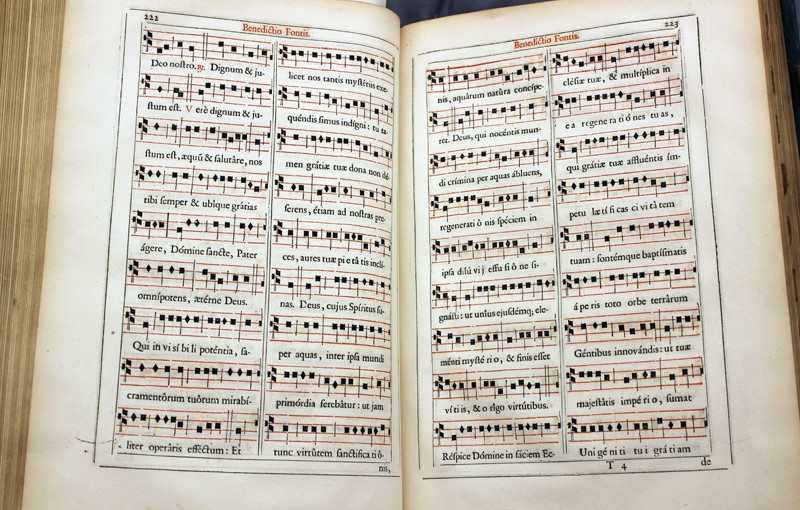 222
Benedictio Fontis.
Deo nostro. ℟. Dignum & ju-
stum est. Verè dignum & ju-
stum est, æquũ & salutáre, nos
tibi semper & ubíque grátias
ágere, Dómine sancte, Pater
omnípotens, ætérne Deus.
Qui in vi sí bi li poténtia, sa-
cramentórum tuórum mirabí-
liter operáris efféctum: Et
licet nos tantis mystériis exe-
quéndis simus indígni: tu ta-
men grátiæ tuæ dona non dé-
serens, étiam ad nostras pre-
ces, aures tuæ pi e tá tis inclí-
nas. Deus, cujus Spíritus su-
per aquas, inter ipsa mundi
primórdia ferebátur: ut jam
tunc virtútem sanctifica ti ó-
nis,
223
Benedictio Fontis.
nis, aquárum natúra concípe-
ret. Deus, qui nocéntis mun-
di crímina per aquas ábluens,
regenerati ó nis spéciem in
ipsa dilú vi j effu si ó ne si-
gnásti: ut uníus ejusdémq; ele-
ménti mysté ri o, & finis esset
ví ti is, & o rígo virtútibus.
Réspice Dómine in fáciem Ec-
clésiæ tuæ, & multíplica in
e a regene ra ti ó nes tu as,
qui grátiæ tuæ affluéntis ím-
petu læ tí fi cas ci vi tá tem
tuam: fontémque baptísmatis
á pe ris toto orbe terrárum
Géntibus innovándis: ut tuæ
majestátis impé ri o, sumat
Uni gé ni ti tu i grá ti am
T 4
de